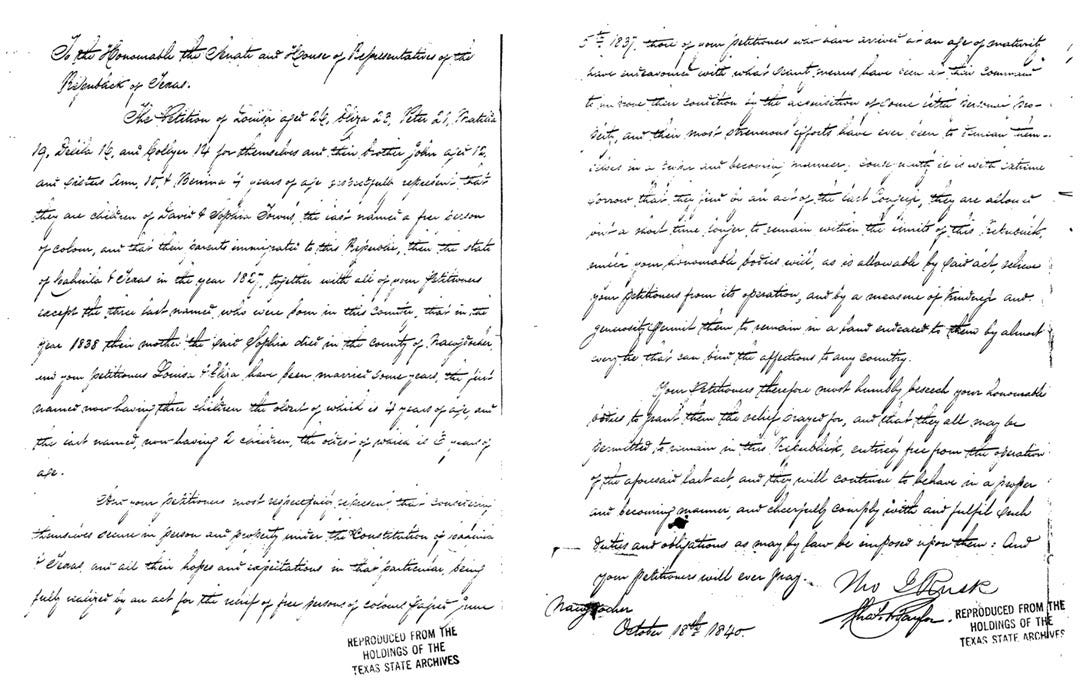 To the Honourable the Senate and House of Representatives of the
Republick of Texas.
The Petition of Louisa aged 26, Eliza 23, Peter 21,
19, Delila 16, and Collyer 14 for themselves and their brother John aged 12,
and sisters Ann, 10, & Benina 4 years of age respectfully represent, that
they are children of David & Sophia Towns, the last named a free person
of colour, and that their parents immigrated to this Republic, then the state
of Coahuila & Texas in the year 1827, together with all of your Petitioners
except the three last named, who were born in this country, that in the
year 1838 their mother the said Sophia died in the county of Nacogdoches,
and your petitioners Louisa & Eliza have been married some years, the first
named now having three children the oldest of which is 4 years of age, and
the last named, now having 2 children, the oldest of which is 3 years of
age.
your petitioners most respectfully represent, that considering
themselves secure in person and property under the Constitution of Coahuila
& Texas, and all their hopes and expectations in that particular, being
fully realized by an act for the relief of free persons of colour, passed June
REPRODUCED FROM THE
HOLDINGS OF THE
TEXAS STATE ARCHIVES
5th 1837, those of your petitioners who have arrived at an age of maturity
have endeavoured with what scant means have been at their command
to improve their condition by the acquisition of some little personal pro-
perty, and their most strenuous efforts have ever been to demean them-
selves in a proper and becoming manner; consequently it is with extreme
sorrow that they find by an act of the last Congress, they are allowed
but a short time longer to remain within the limits of this Republick,
unless your honourable bodies will, as is allowable by said act, relieve
your petitioners from its operation, and by a measure of kindness and
generosity permit them to remain in a land endeared to them by almost
every tie that can bind the affections to any country.
Your Petitioners therefore most humbly beseech your honourable
bodies to grant them the relief prayed for, and that they all may be
permitted to remain in this Republick, entirely free from the operation
of the aforesaid last act, and they will continue to behave in a proper
and becoming manner, and cheerfully comply with and fulfil such
duties and obligations as may by law be imposed upon them: And
your Petitioners will ever pray.
Tho J Rusk
Nacogdoches
Chas. S. Taylor.
October 18th 1840.
REPRODUCED FROM THE
HOLDINGS OF THE
TEXAS STATE ARCHIVES